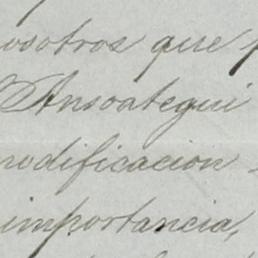 nosotros que
Ansoategui
modificacion
importancia,